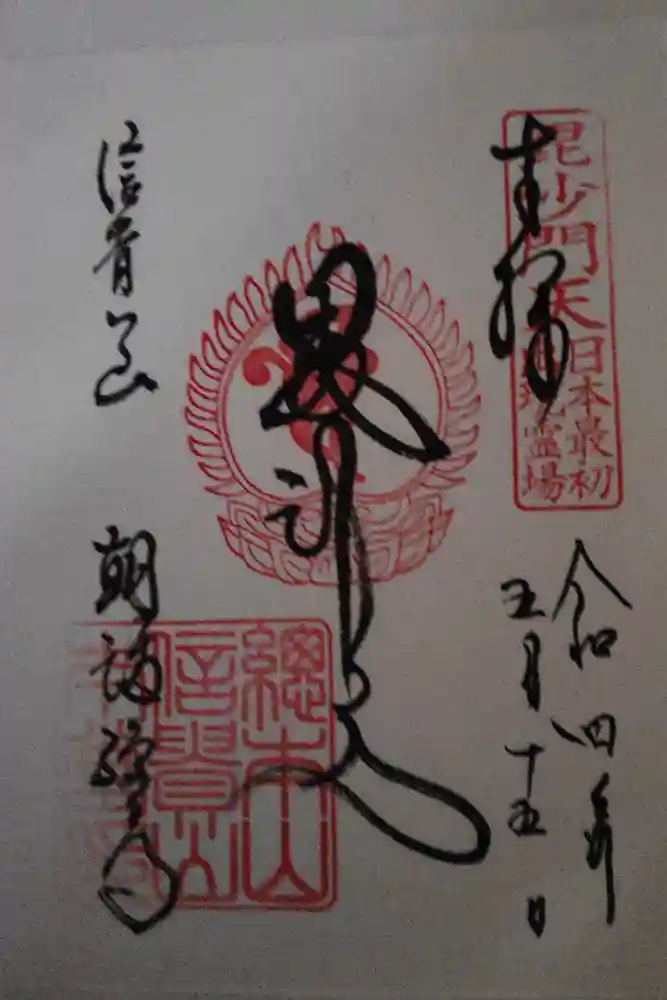 奉拝
毘沙門天
日本最初
出現霊場
令和四年
五月十五日
毘沙門天
信貴山
朝護孫子寺
總本山
信貴山